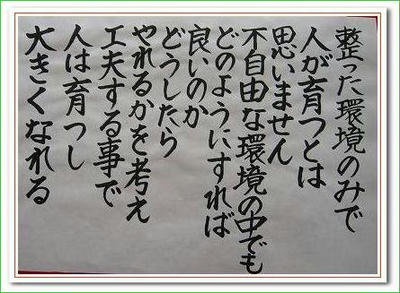 整った環境のみで
人が育つとは
思いません
不自由な環境の中でも
どのようにすれば
良いのか
どうしたら
やれるかを考え
工夫する事で
人は育つし
大きくなれる